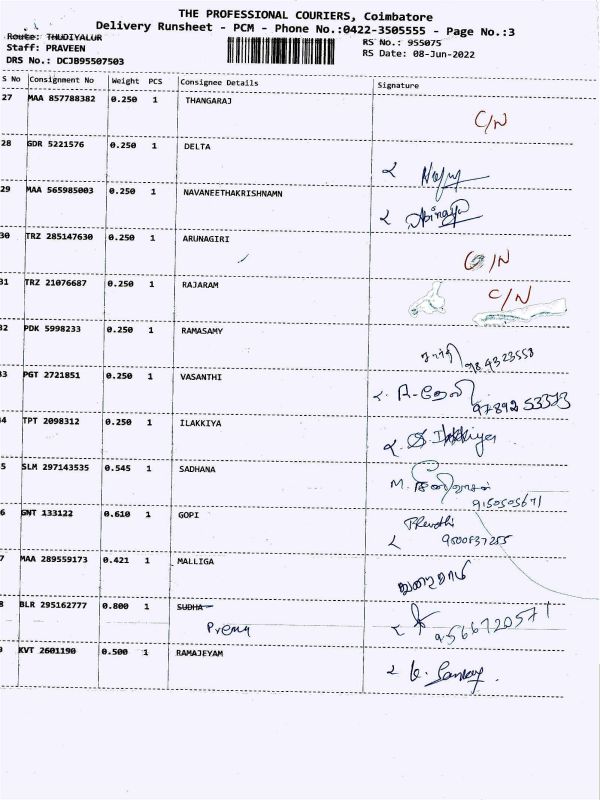 THE PROFESSIONAL COURIERS, Coimbatore
Delivery Runsheet - PCM - Phone No.:0422-3505555 - Page No.:3
Route: THUDIYALUR
RS No.: 955075
Staff: PRAVEEN
RS Date: 08-Jun-2022
DRS No.: DCJB95507503
S No Consignment No Weight PCS Consignee Details Signature
27 MAA 857788382 0.250 1 THANGARAJ C/N
28 GDR 5221576 0.250 1 DELTA
29 MAA 565985003 0.250 1 NAVANEETHAKRISHNAMN Abinaya
30 TRZ 285147630 0.250 1 ARUNAGIRI C/N
31 TRZ 21076687 0.250 1 RAJARAM C/N
32 PDK 5998233 0.250 1 RAMASAMY
33 PGT 2721851 0.250 1 VASANTHI
4 TPT 2098312 0.250 1 ILAKKIYA S. Ilakkiya
5 SLM 297143535 0.545 1 SADHANA
9150505671
6 GNT 133122 0.610 1 GOPI
7 MAA 289559173 0.421 1 MALLIGA
8 BLR 295162777 0.800 1 SUDHA
Prema 9566720571
KVT 2601190 0.500 1 RAMAJEYAM